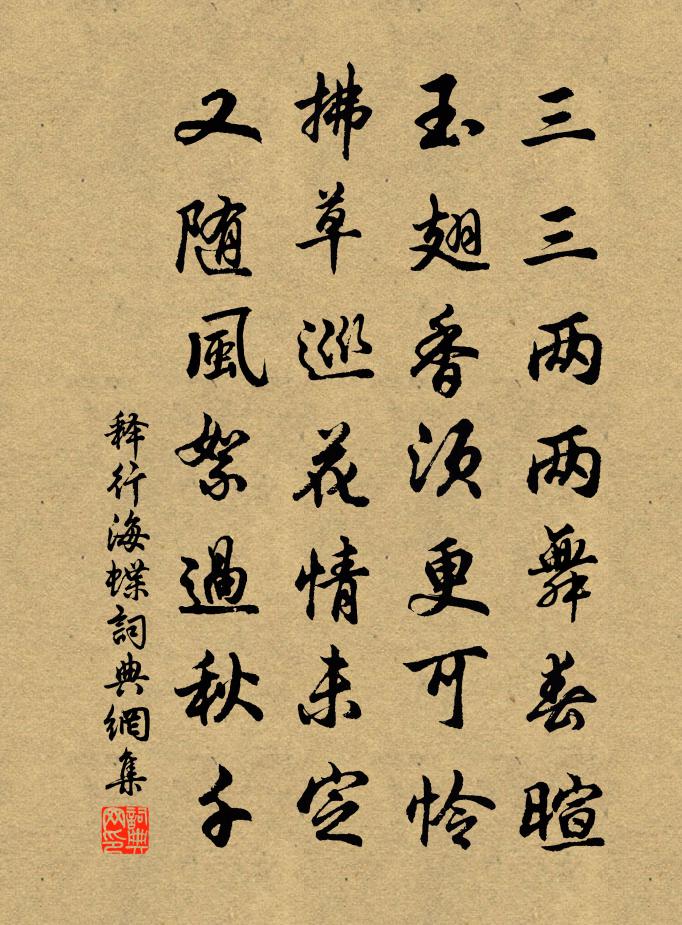 三三两两舞春暄
玉翅香须更可怜
拂草巡花情未定
又随風絮過秋千
释行海蝶詞典網集
詞典网印